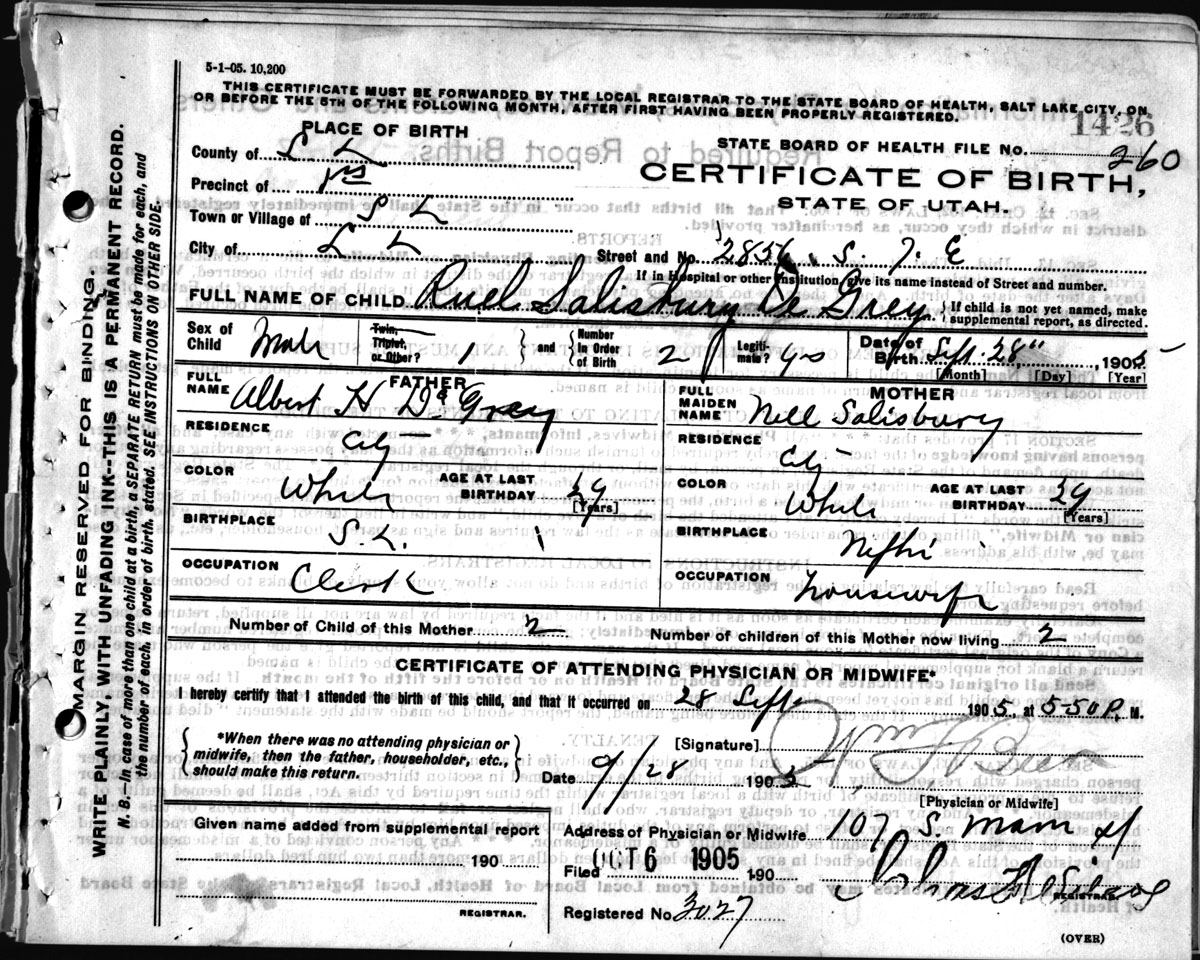 5-1-05. 10,200
THIS CERTIFICATE MUST BE FORWARDED BY THE LOCAL REGISTRAR TO THE STATE BOARD OF HEALTH, SALT LAKE CITY, ON
OR BEFORE THE 5TH OF THE FOLLOWING MONTH, AFTER FIRST HAVING BEEN PROPERLY REGISTERED.
1426
PLACE OF BIRTH
STATE BOARD OF HEALTH FILE NO. 260
County of S L
CERTIFICATE OF BIRTH,
STATE OF UTAH.
Precinct of 1st
Town or Village of S L
City of S L
Street and No. 2856 S. 7. E
If in Hospital or other Institution, give its name instead of Street and number.
FULL NAME OF CHILD Ruel Salisbury De Grey
If child is not yet named, make
supplemental report, as directed.
Sex of Child Male
Twin, Triplet, or Other? 1
and Number in Order of Birth 2
Legitimate? yes
Date of Birth Sept. 28" 1905
[Month] [Day] [Year]
FATHER
FULL NAME Albert H De Grey
RESIDENCE City
COLOR White
AGE AT LAST BIRTHDAY 29 [Years]
BIRTHPLACE S. L.
OCCUPATION Clerk
MOTHER
FULL MAIDEN NAME Nell Salisbury
RESIDENCE City
COLOR White
AGE AT LAST BIRTHDAY 29 [Years]
BIRTHPLACE Nephi
OCCUPATION Housewife
Number of Child of this Mother 2
Number of children of this Mother now living 2
CERTIFICATE OF ATTENDING PHYSICIAN OR MIDWIFE*
I hereby certify that I attended the birth of this child, and that it occurred on 28 Sept 1905. at 5-50 P. M.
*When there was no attending physician or
midwife, then the father, householder, etc.,
should make this return.
[Signature]
Date 9/28 1905
[Physician or Midwife]
Given name added from supplemental report
190
REGISTRAR.
Address of Physician or Midwife 107 S. Main st
Filed OCT 6 1905 190
REGISTRAR.
Registered No. 3027
(OVER)
MARGIN RESERVED FOR BINDING.
WRITE PLAINLY, WITH UNFADING INK--THIS IS A PERMANENT RECORD.
N. B.—In case of more than one child at a birth, a SEPARATE RETURN must be made for each, and
the number of each, in order of birth, stated. SEE INSTRUCTIONS ON OTHER SIDE.